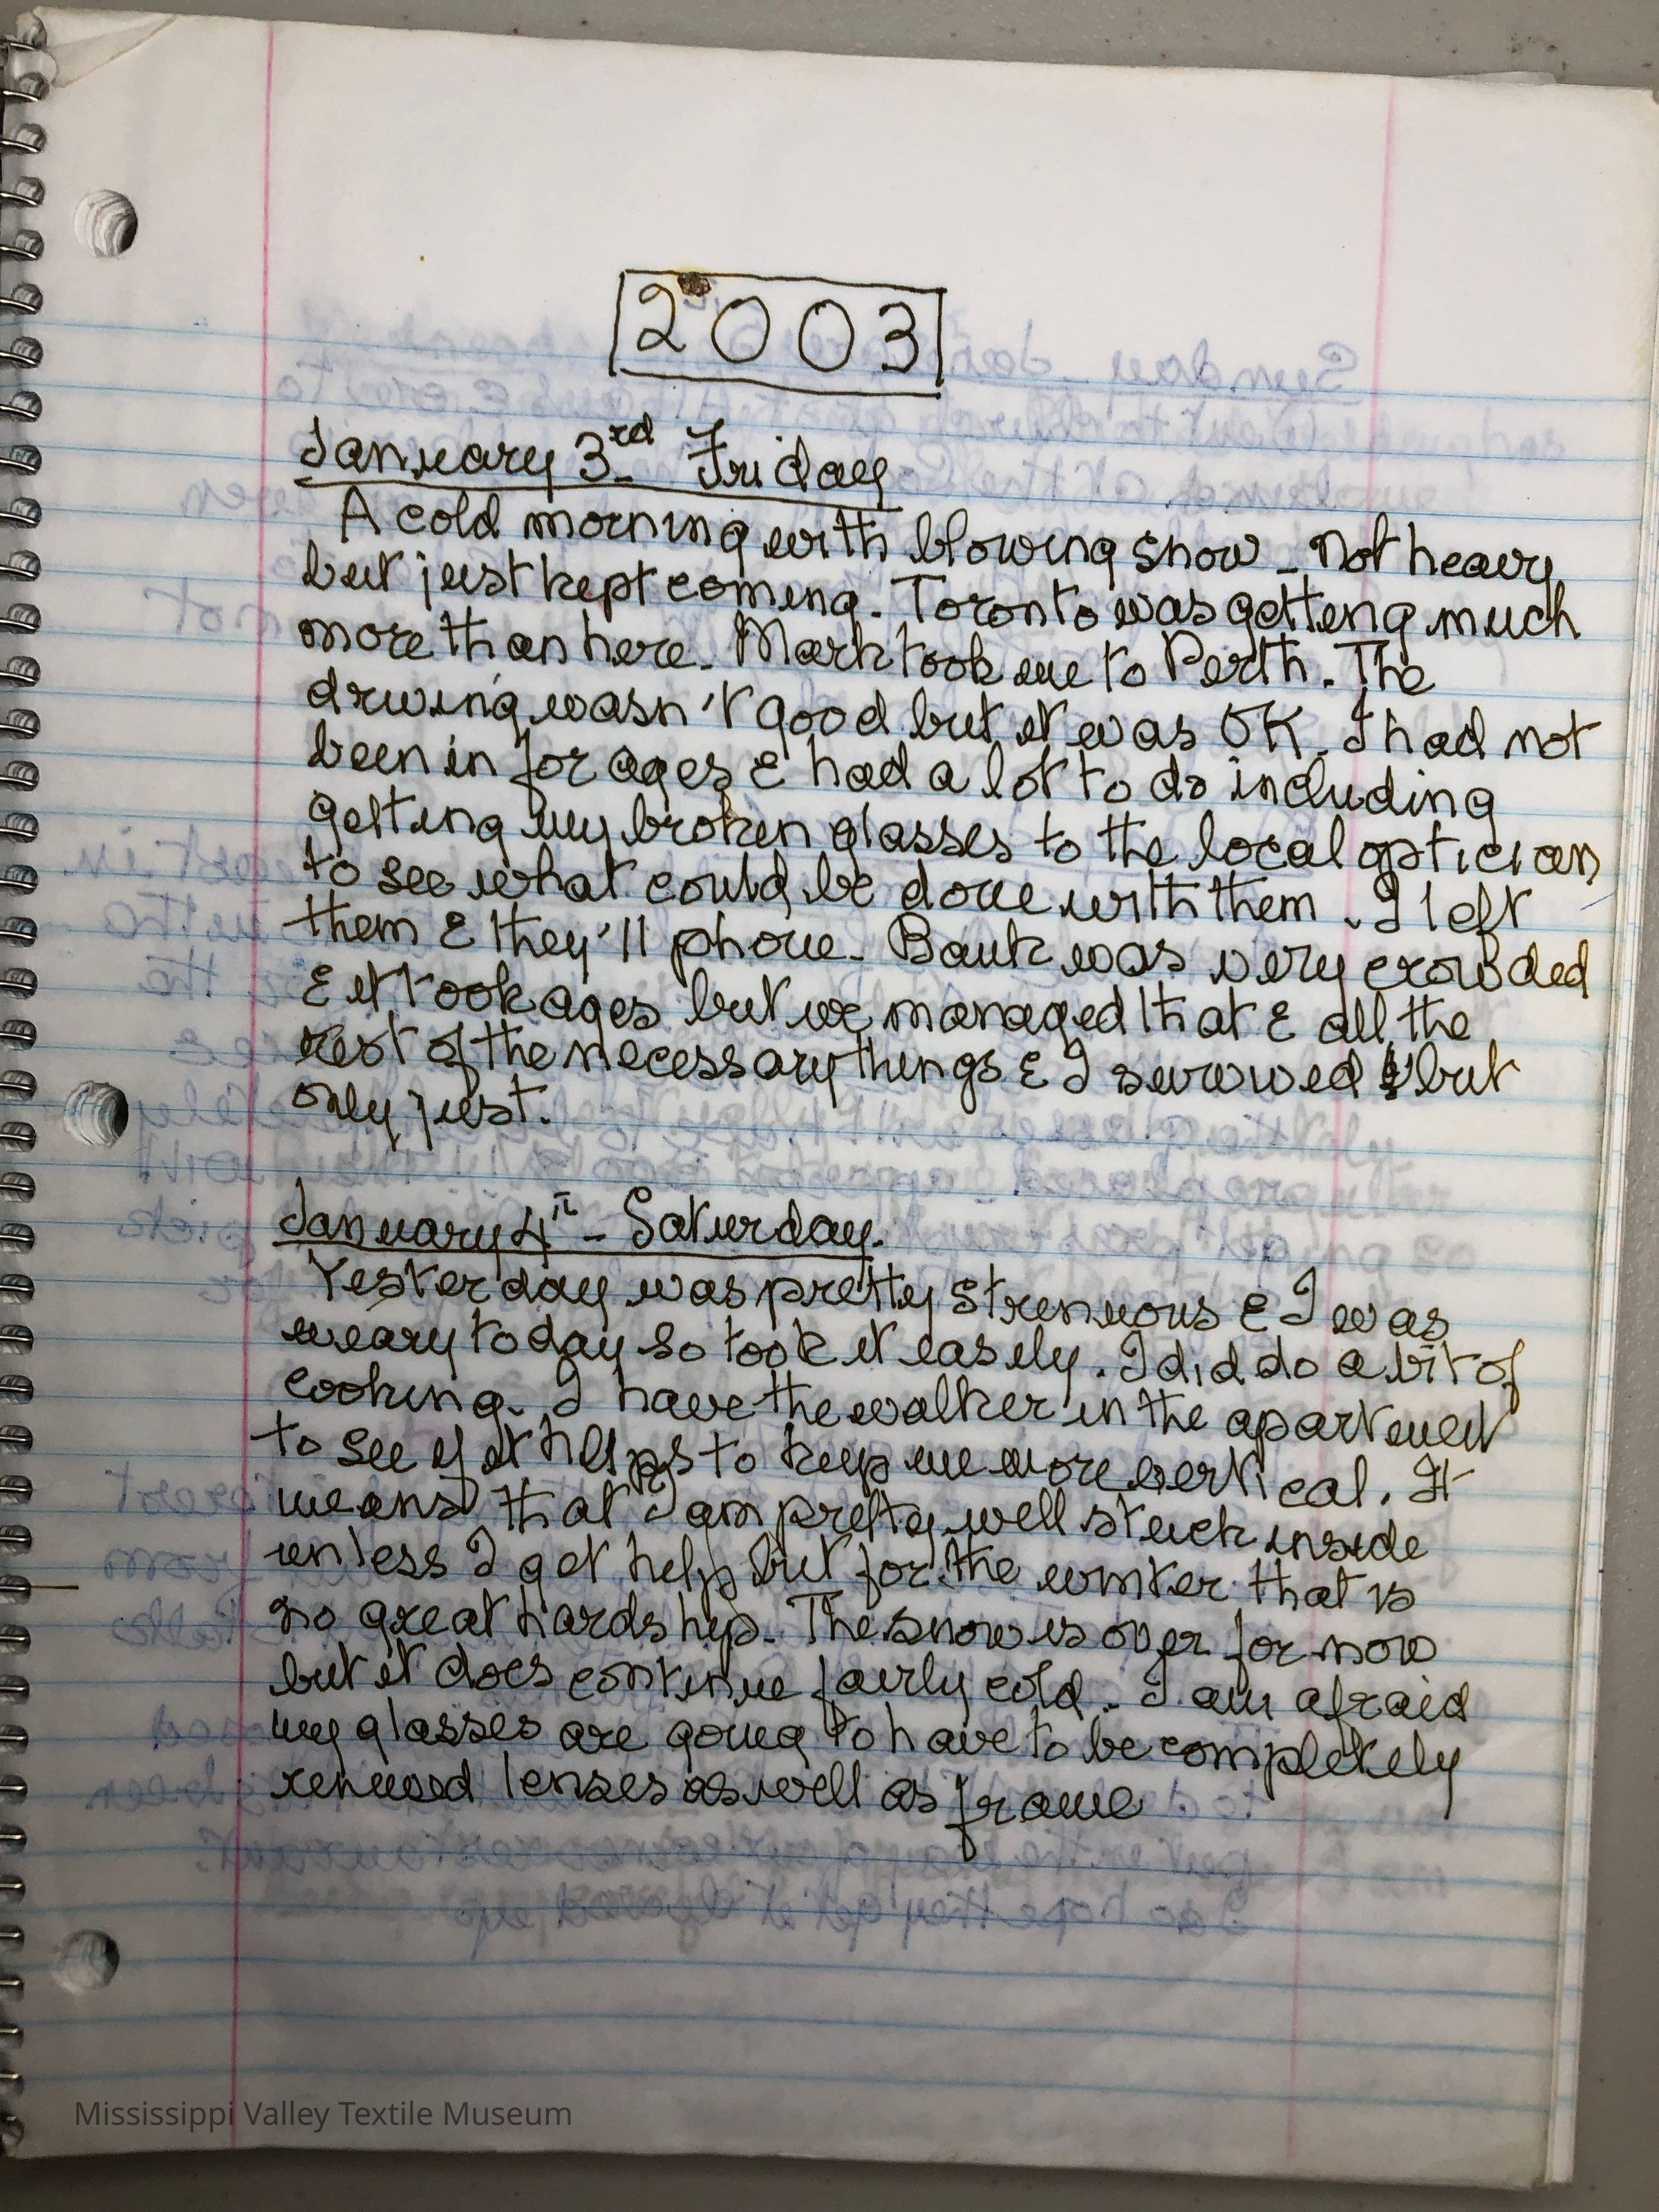 2003
January 3rd Friday
A cold morning with blowing snow - not heavy
but just kept coming. Toronto was getting much
more than here. Mark took me to Perth. The
driving wasn't good but it was OK. I had not
been in for ages & had a lot to do including
getting my broken glasses to the local optician
to see what could be done with them. I left
them & they'll phone. Bank was very crowded
& it took ages but we managed that & all the
rest of the necessary things & I survived but
only just.
January 4th - Saturday.
Yesterday was pretty strenuous & I was
weary today so took it easily. I did do a bit of
cooking. I have the walker in the apartment
to see if it helps to keep me more vertical. It
means that I am pretty well stuck inside
unless I get help but for the winter that is
no great hardship. The snow is over for now
but it does continue fairly cold. I am afraid
my glasses are going to have to be completely
renewed lenses as well as frame
Mississippi Valley Textile Museum